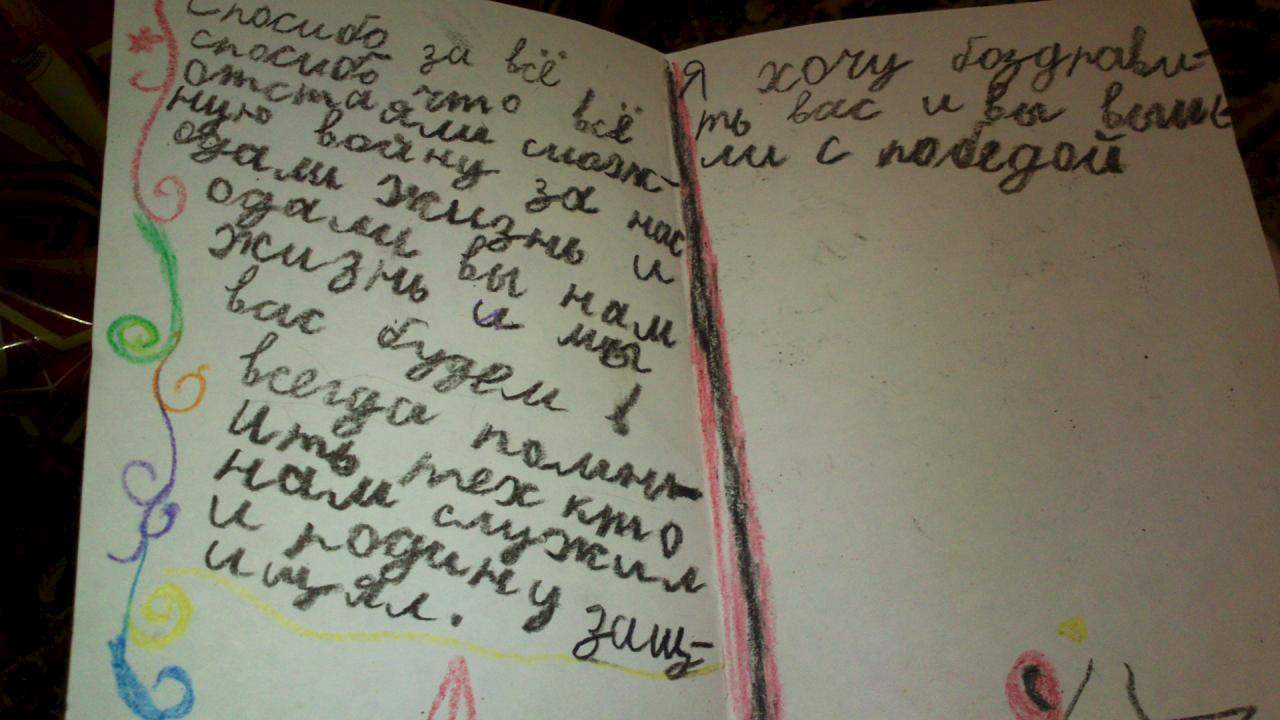 Спосибо за всё
спосибо что всё
отстаяли смаж-
ную войну за нас
одами жизнь и
одами вы нам
жизнь и мы
вас будем в
всегда помин-
ить тех кто
нам служил
и родину защ-
ищял.
Я хочу боздрави-
ть вас и вы выше
ли с победой